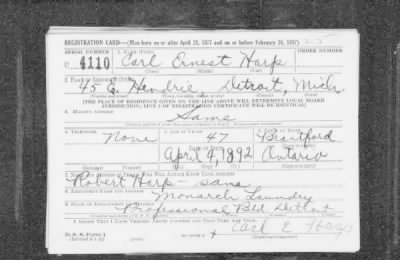 REGISTRATION CARD—(Men born on or after April 28, 1877 and on or before February 16, 1897)
SERIAL NUMBER 1. NAME (Print) ORDER NUMBER
U 4110 Carl Ernest Harp
(First) (Middle) (Last)
2. PLACE OF RESIDENCE (Print)
45 E. Hendrie, Detroit, Mich.
[THE PLACE OF RESIDENCE GIVEN ON THE LINE ABOVE WILL DETERMINE LOCAL BOARD
JURISDICTION; LINE 2 OF REGISTRATION CERTIFICATE WILL BE IDENTICAL]
3. MAILING ADDRESS
Same
4. TELEPHONE 5. AGE IN YEARS 6. PLACE OF BIRTH
None 47 Brantford
DATE OF BIRTH
April 4, 1892 Ontario
7. NAME AND ADDRESS OF PERSON WHO WILL ALWAYS KNOW YOUR ADDRESS
Robert Harp — same
8. EMPLOYER'S NAME AND ADDRESS
Monarch Laundry
9. PLACE OF EMPLOYMENT OR BUSINESS
Professional Bld Detroit
I AFFIRM THAT I HAVE VERIFIED ABOVE ANSWERS AND THAT THEY ARE TRUE.
D. S. S. Form 1
(Revised 4-1-42) Carl E. Harp